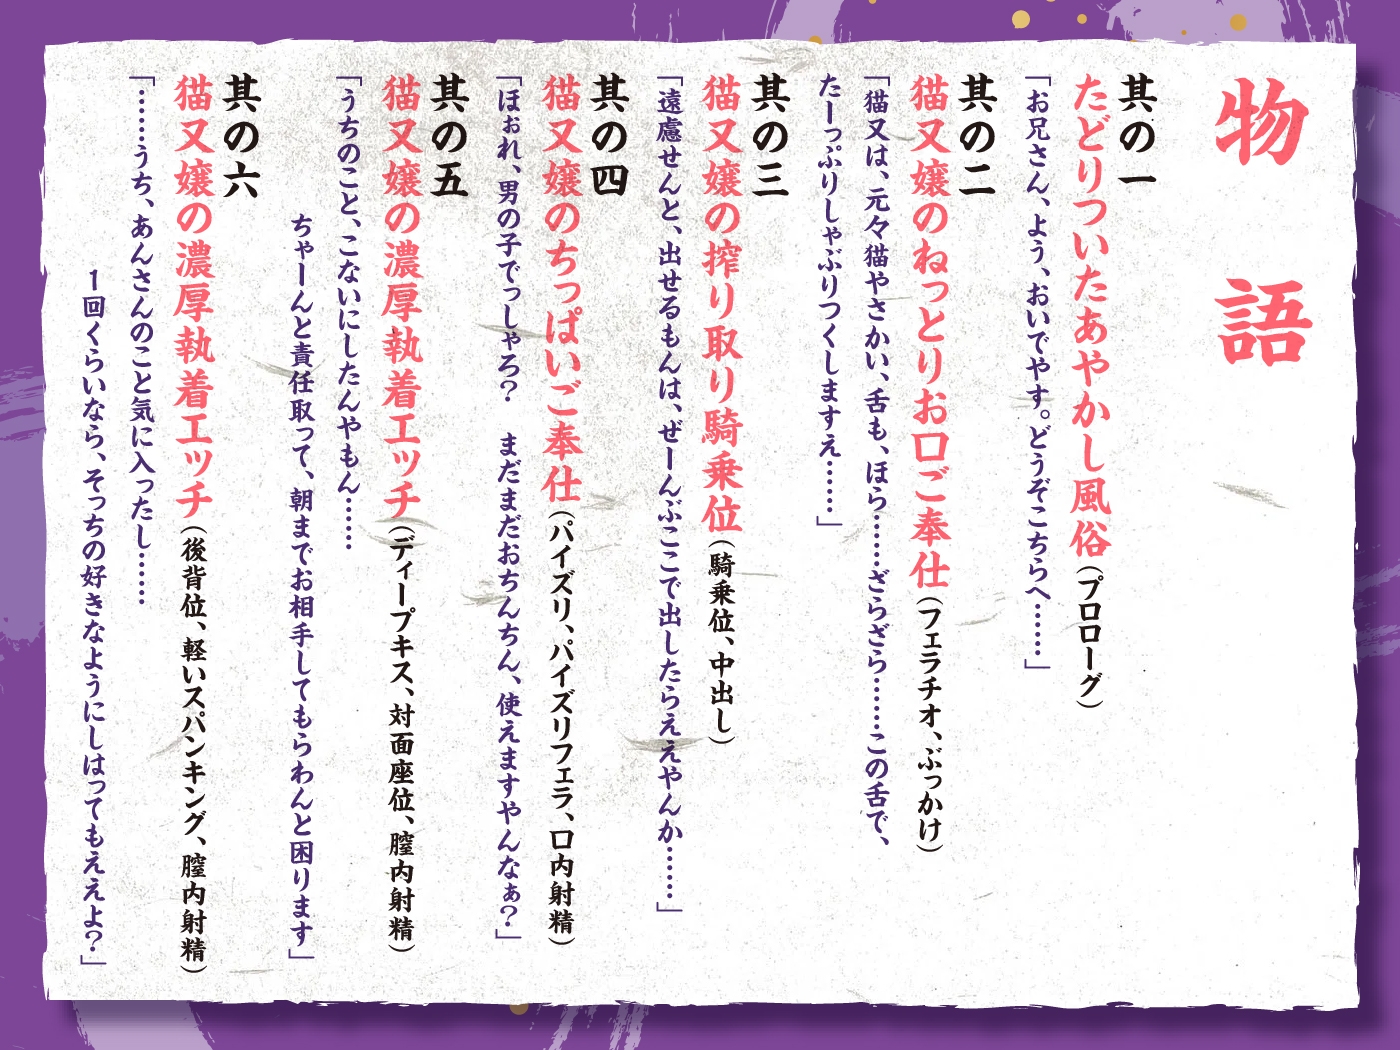 物語
其の一
たどりついたあやかし風俗（プロローグ）
「お兄さん、よう、おいでやす。どうぞこちらへ……」
其の二
猫又嬢のねっとりお口ご奉仕（フェラチオ、ぶっかけ）
「猫又は、元々猫やさかい、舌も、ほら……ざらざら……この舌で、
たーっぷりしゃぶりつくしますえ……」
其の三
猫又嬢の搾り取り騎乗位（騎乗位、中出し）
「遠慮せんと、出せるもんは、ぜーんぶここで出したらええやんか……」
其の四
猫又嬢のちっぱいご奉仕（パイズリ、パイズリフェラ、口内射精）
「ほぉれ、男の子でっしゃろ？　まだまだおちんちん、使えますやんなぁ？」
其の五
猫又嬢の濃厚執着エッチ（ディープキス、対面座位、膣内射精）
「うちのこと、こないにしたんやもん……
ちゃーんと責任取って、朝までお相手してもらわんと困ります」
其の六
猫又嬢の濃厚執着エッチ（後背位、軽いスパンキング、膣内射精）
「……うち、あんさんのこと気に入ったし……
１回くらいなら、そっちの好きなようにしはってもええよ？」